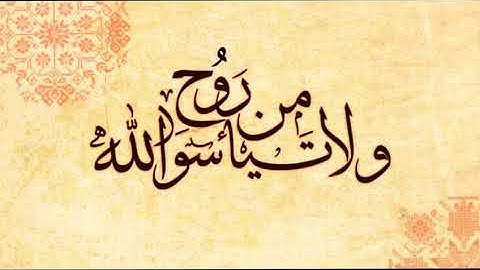 ولا تيأسوا من رَوْح الله